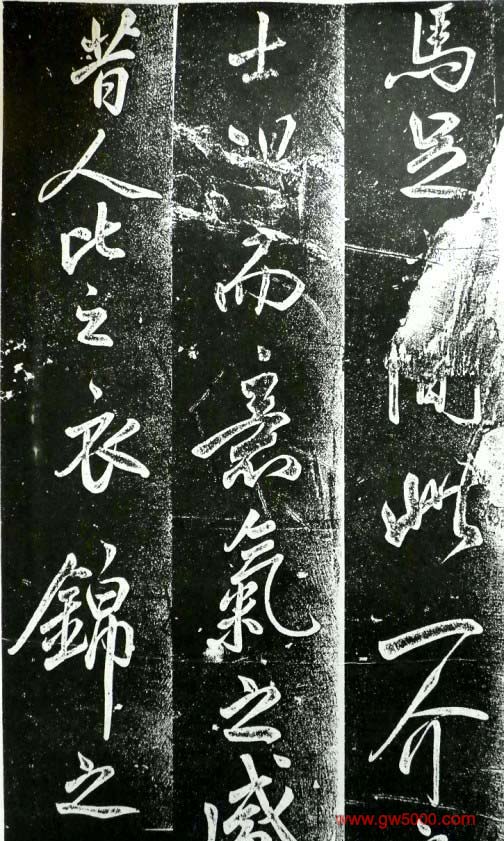 馬足間此一介之
士得而意氣之盛
昔人比之衣錦之
www.gw5000.com